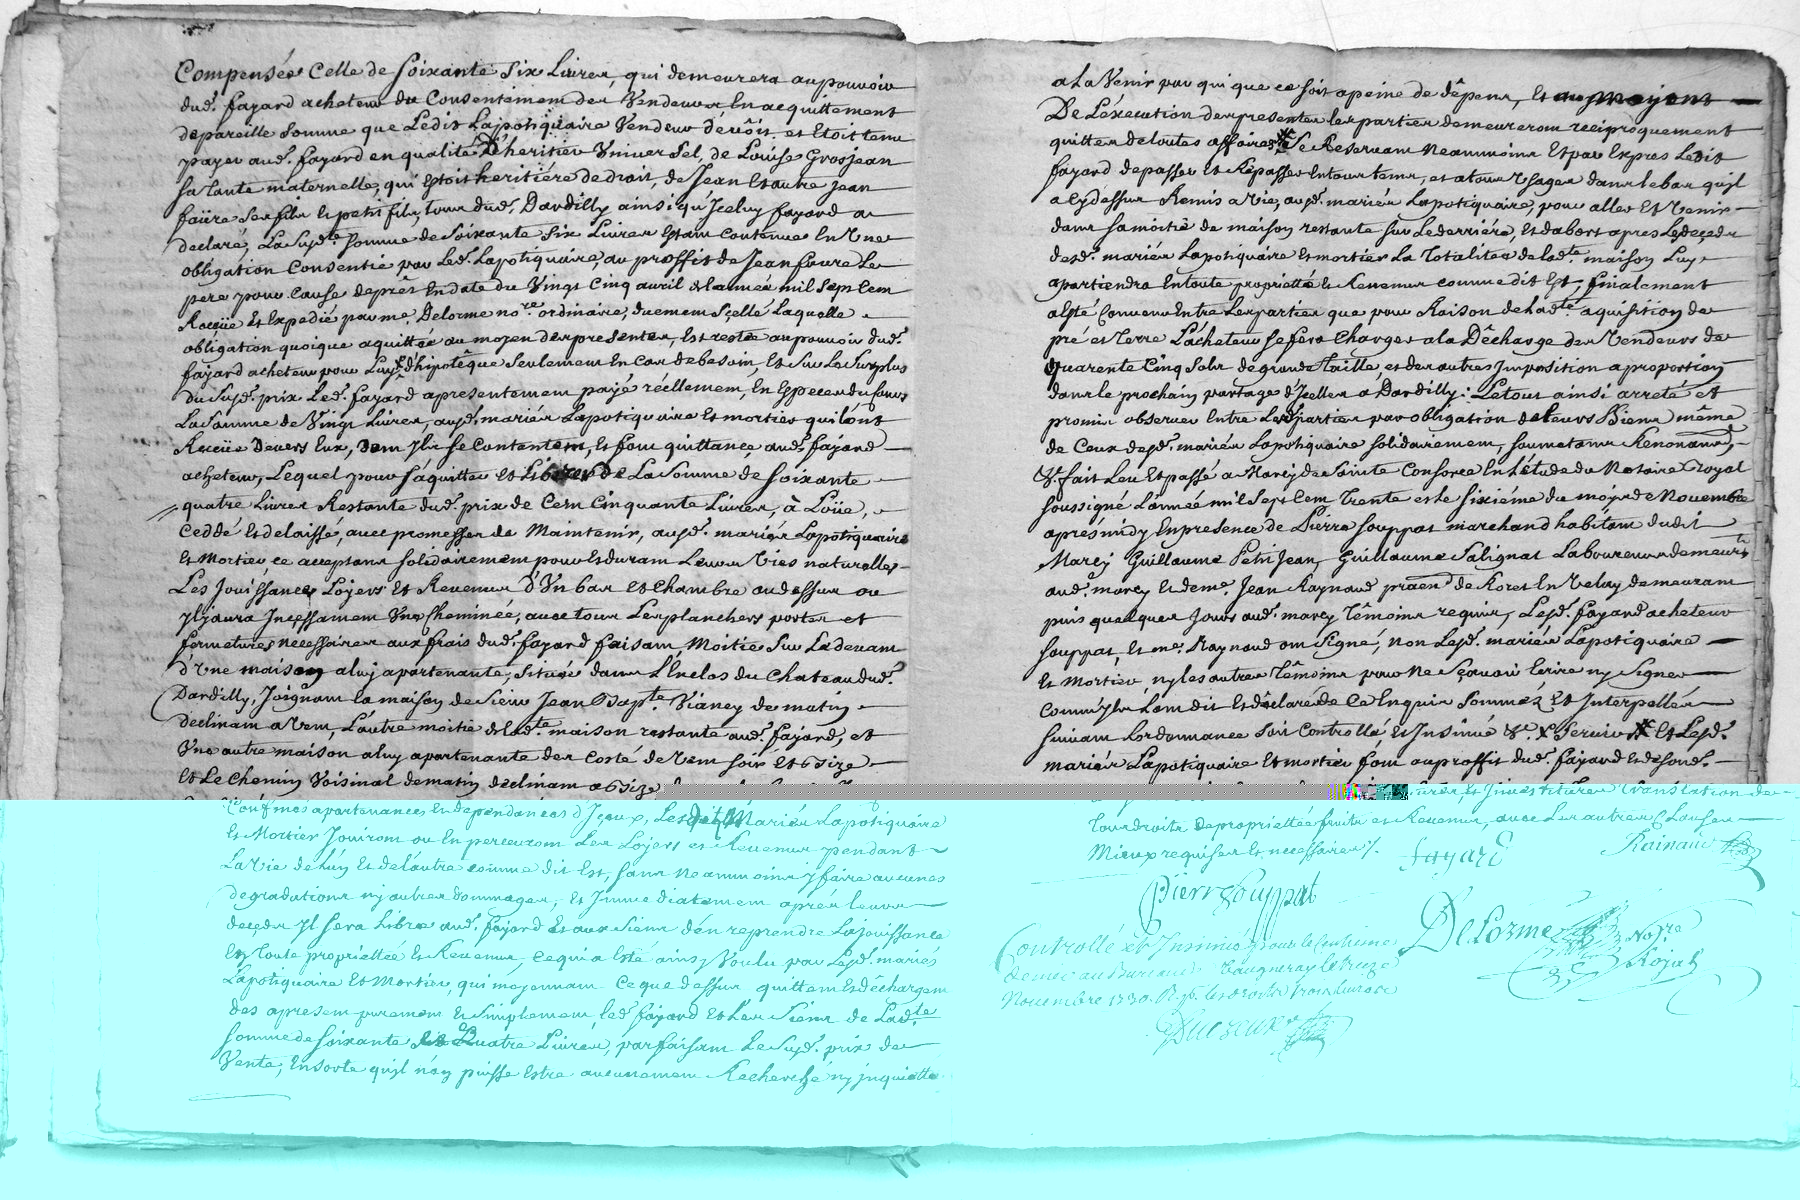 Compensée Celle de soixante six Livres, qui demeurera au pouvoir
dud. fayard acheteur du Consentement des Vendeurs En acquittement
de pareille somme que Ledit Lapotiquaire Vendeur devoit et Etoit tenu
payer aud. fayard en qualité D'heritier Vniversel, de Louise Grosjean
sa Tante maternelle, qui Estoit heritiére de droit, de Jean Et autre Jean
faüre ses fils et petit fils, tous dud. Dardilly ainsi qu'Jceluy fayard a
declaré, La susd.te somme de soixante six Livres Estant Contenue En Vne
obligation Consentie par Led. Lapotiquaire, au proffit de Jean faure Le
pere pour Cause de prest En date du Vingt Cinq avril de l'année mil sept Cent
Reçüe Et Expedié par me. Delorme no.re ordinaire, duement sçellé Laquelle
obligation quoique aquittée au moyen des presentes, Est restée au pouvoir dud.
fayard acheteur pour Luy d'hipotêque seulement En Cas de besoin, Et sur Le surplus
du susd. prix Led. fayard a presentement payé réellement, En Especes du Cours
La somme de Vingt Livres, ausd. mariés Lapotiquaire Et mortier qu'ils ont
Reçüe Devers Eux, Dont Jls se Contentent, Et font quittance aud. fayard
acheteur, Lequel pour s'aquitter Et Liberer de La somme de soixante
quatre Livres Restante dud. prix de Cent Cinquante Livres, à Loüé,
Ceddé Et delaissé, avec promesses de Maintenir, ausd. mariés Lapotiquaire
Et Mortier ce acceptant solidairement pour Et durant Leurs Vies naturelles
Les Jouissances Loyers Et Revenus d'Vn bas Et Chambre au dessus ou
Jl y aura Jncessament Vne Cheminée, avec tous Les planchers portes et
fermetures necessaires aux frais dud. fayard faisant Moitié sur La devant
d'Vne maison a luy apartenante, située dans L'Enclos du Chateau dud.
Dardilly, Joignant la maison de sieur Jean Bapt.te Vianey de matin
declinant a Vent, L'autre moitié de lad.te maison restante aud. fayard, et
Vne autre maison a luy apartenante des Costé de Vent soir et bize
Et Le Chemin Voisinal de matin declinant a bize
Confins apartenances Et dependances d'Jçeux, Lesdits Mariés Lapotiquaire
Et Mortier Jouiront ou En percevront Les Loyers et Revenus pendant
La Vie de l'un Et de l'autre comme dit Est, sans neanmoins y faire aucunes
degradations ny autres dommages, Et Jmmediatement aprés leurs
deceds Jl sera Libre aud. fayard Et aux siens d'en reprendre La jouissance
En Toute propriettée Et Revenus, ce qui a Esté ainsy Voulu par Lesd. mariés
Lapotiquaire Et Mortier, qui moyennant Ce que dessus quittent Et déchargent
des apresent purement Et simplement, led. fayard Et Les siens de Lad.te
somme de soixante Quatre Livres, parfaisant Le susd. prix de
Vente, En sorte qu'Jl n'en puisse Estre aucunement Recherché ny jnquietté
a La Venir par qui que ce soit a peine de dêpens, Et au moyens
De L'éxecution des presentes les parties demeureront reciproquement
quittes de toutes affaires Se Reservant neanmoins Et par Expres Ledit
fayard de passer Et Répasser En tous tems, et a tous Vsages dans le bas qu'il
a Cy dessus Remis a Vie, ausd. mariés Lapotiquaire, pour aller Et Venir
dans sa moitié de maison restante sur Le derriére, Et d'abort apres Le deçeds
desd. mariés Lapotiquaire Et mortier La Totalitée de lad.te maison Luy
apartiendra En toute proprietté Et Revenus comme dit Est, finalement
a Esté Convenu Entre Les parties que pour Raison de lad.te aquisition de
pré et Terre L'acheteur se fera Charger a la Dêcharge des Vendeurs de
quarente Cinq sols de grande Taille et des autres Jmposition a proportion
dans le prochain partage d'Jcelles a Dardilly; Le tout ainsi arreté et
promis observer Entre Lesd. parties par obligation de leurs Biens même
de Ceux desd. mariés Lapotiquaire solidairement, soumetans Renonçant,
&. fait Leu Et passé a Marcy de sainte Consorce En L'étude du Notaire Royal
soussigné L'année mil sept Cent Trente et Le sixiéme du moy de Novembre
aprés midy En presence de Pierre souppat marchand habitant dudit
Marcy Guillaume PetitJean, Guillaume Salignat Laboureurs demeur.ts
aud. marcy et de me. Jean Raynaud de En Velay demeurant
puis quelques Jours aud. marcy Têmoins requis, Lesd. fayard acheteur
souppat, Et me. Raynaud ont signé, non Lesd. mariés Lapotiquaire
Et Mortier, ny les autres Têmoins pour ne sçavoir Ecrire ny signer
comm'Jls L'ont dit Et déclaré de Ce Enquis sommés Et Jnterpellés
suivant L'ordonnance soit Controllé, Et Jnsinué &. Et Lesd.
mariés Lapotiquaire Et mortier font au proffit dud. fayard
Et Jnvestiture translation de
Tous droits de propriettée fruits et Revenus, avec Les autres Clauses
Mieux requises Et necessaires /.
fayard
Rainaud
Pierre souppat
Delorme No.re Royal
Controllé et Jnsinué pour le Centieme
denier au Bureau de Vaugneray le treize
Novembre 1730.